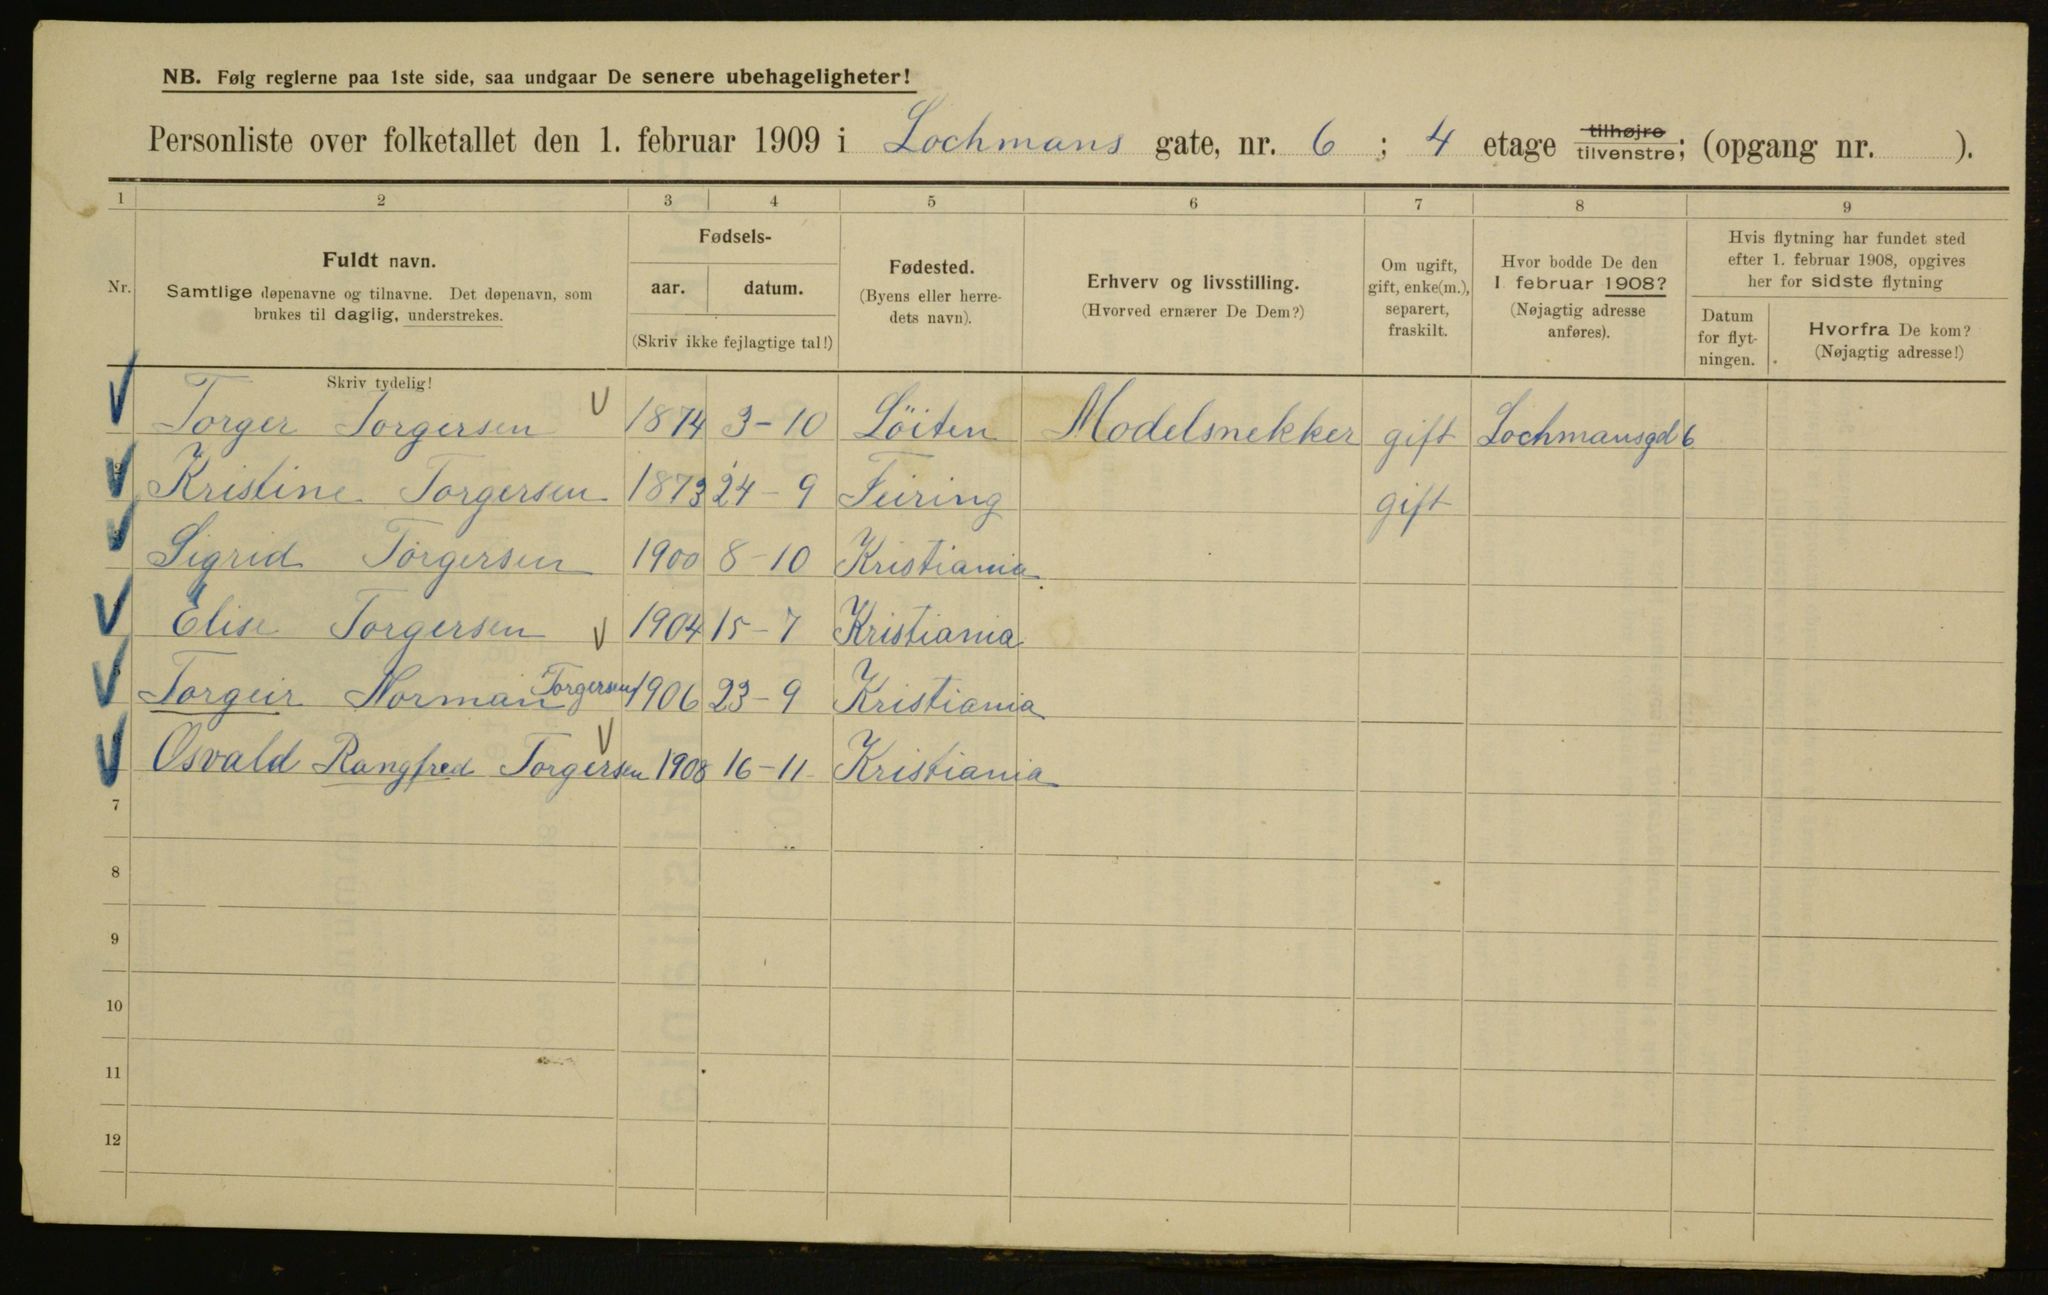 NB. Følg reglerne paa 1ste side, saa undgaar De senere ubehageligheter!
Personliste over folketallet den 1. februar 1909 i Lochmans gate, nr. 6 ; 4 etage tilhøjre tilvenstre; (opgang nr. ).
1 2 3 4 5 6 7 8 9
Nr.
Fuldt navn.
Samtlige døpenavne og tilnavne. Det døpenavn, som
brukes til daglig, understrekes.
Skriv tydelig!
Fødsels-
aar. datum.
(Skriv ikke fejlagtige tal!)
Fødested.
(Byens eller herre-
dets navn).
Erhverv og livsstilling.
(Hvorved ernærer De Dem?)
Om ugift,
gift, enke(m.),
separert,
fraskilt.
Hvor bodde De den
1 februar 1908?
(Nøjagtig adresse
anføres).
Hvis flytning har fundet sted
efter 1. februar 1908, opgives
her for sidste flytning
Datum
for flyt-
ningen.
Hvorfra De kom?
(Nøjagtig adresse!)
Torger Torgersen 1874 3-10 Löiten Modelsnekker gift Lochmansgd 6
Kristine Torgersen 1873 24-9 Feiring gift
Sigrid Torgersen 1900 8-10 Kristiania
Elise Torgersen 1904 15-7 Kristiania
Torgeir Norman Torgersen 1906 23-9 Kristiania
Osvald Rangfred Torgersen 1908 16-11 Kristiania
7
8
9
10
11
12